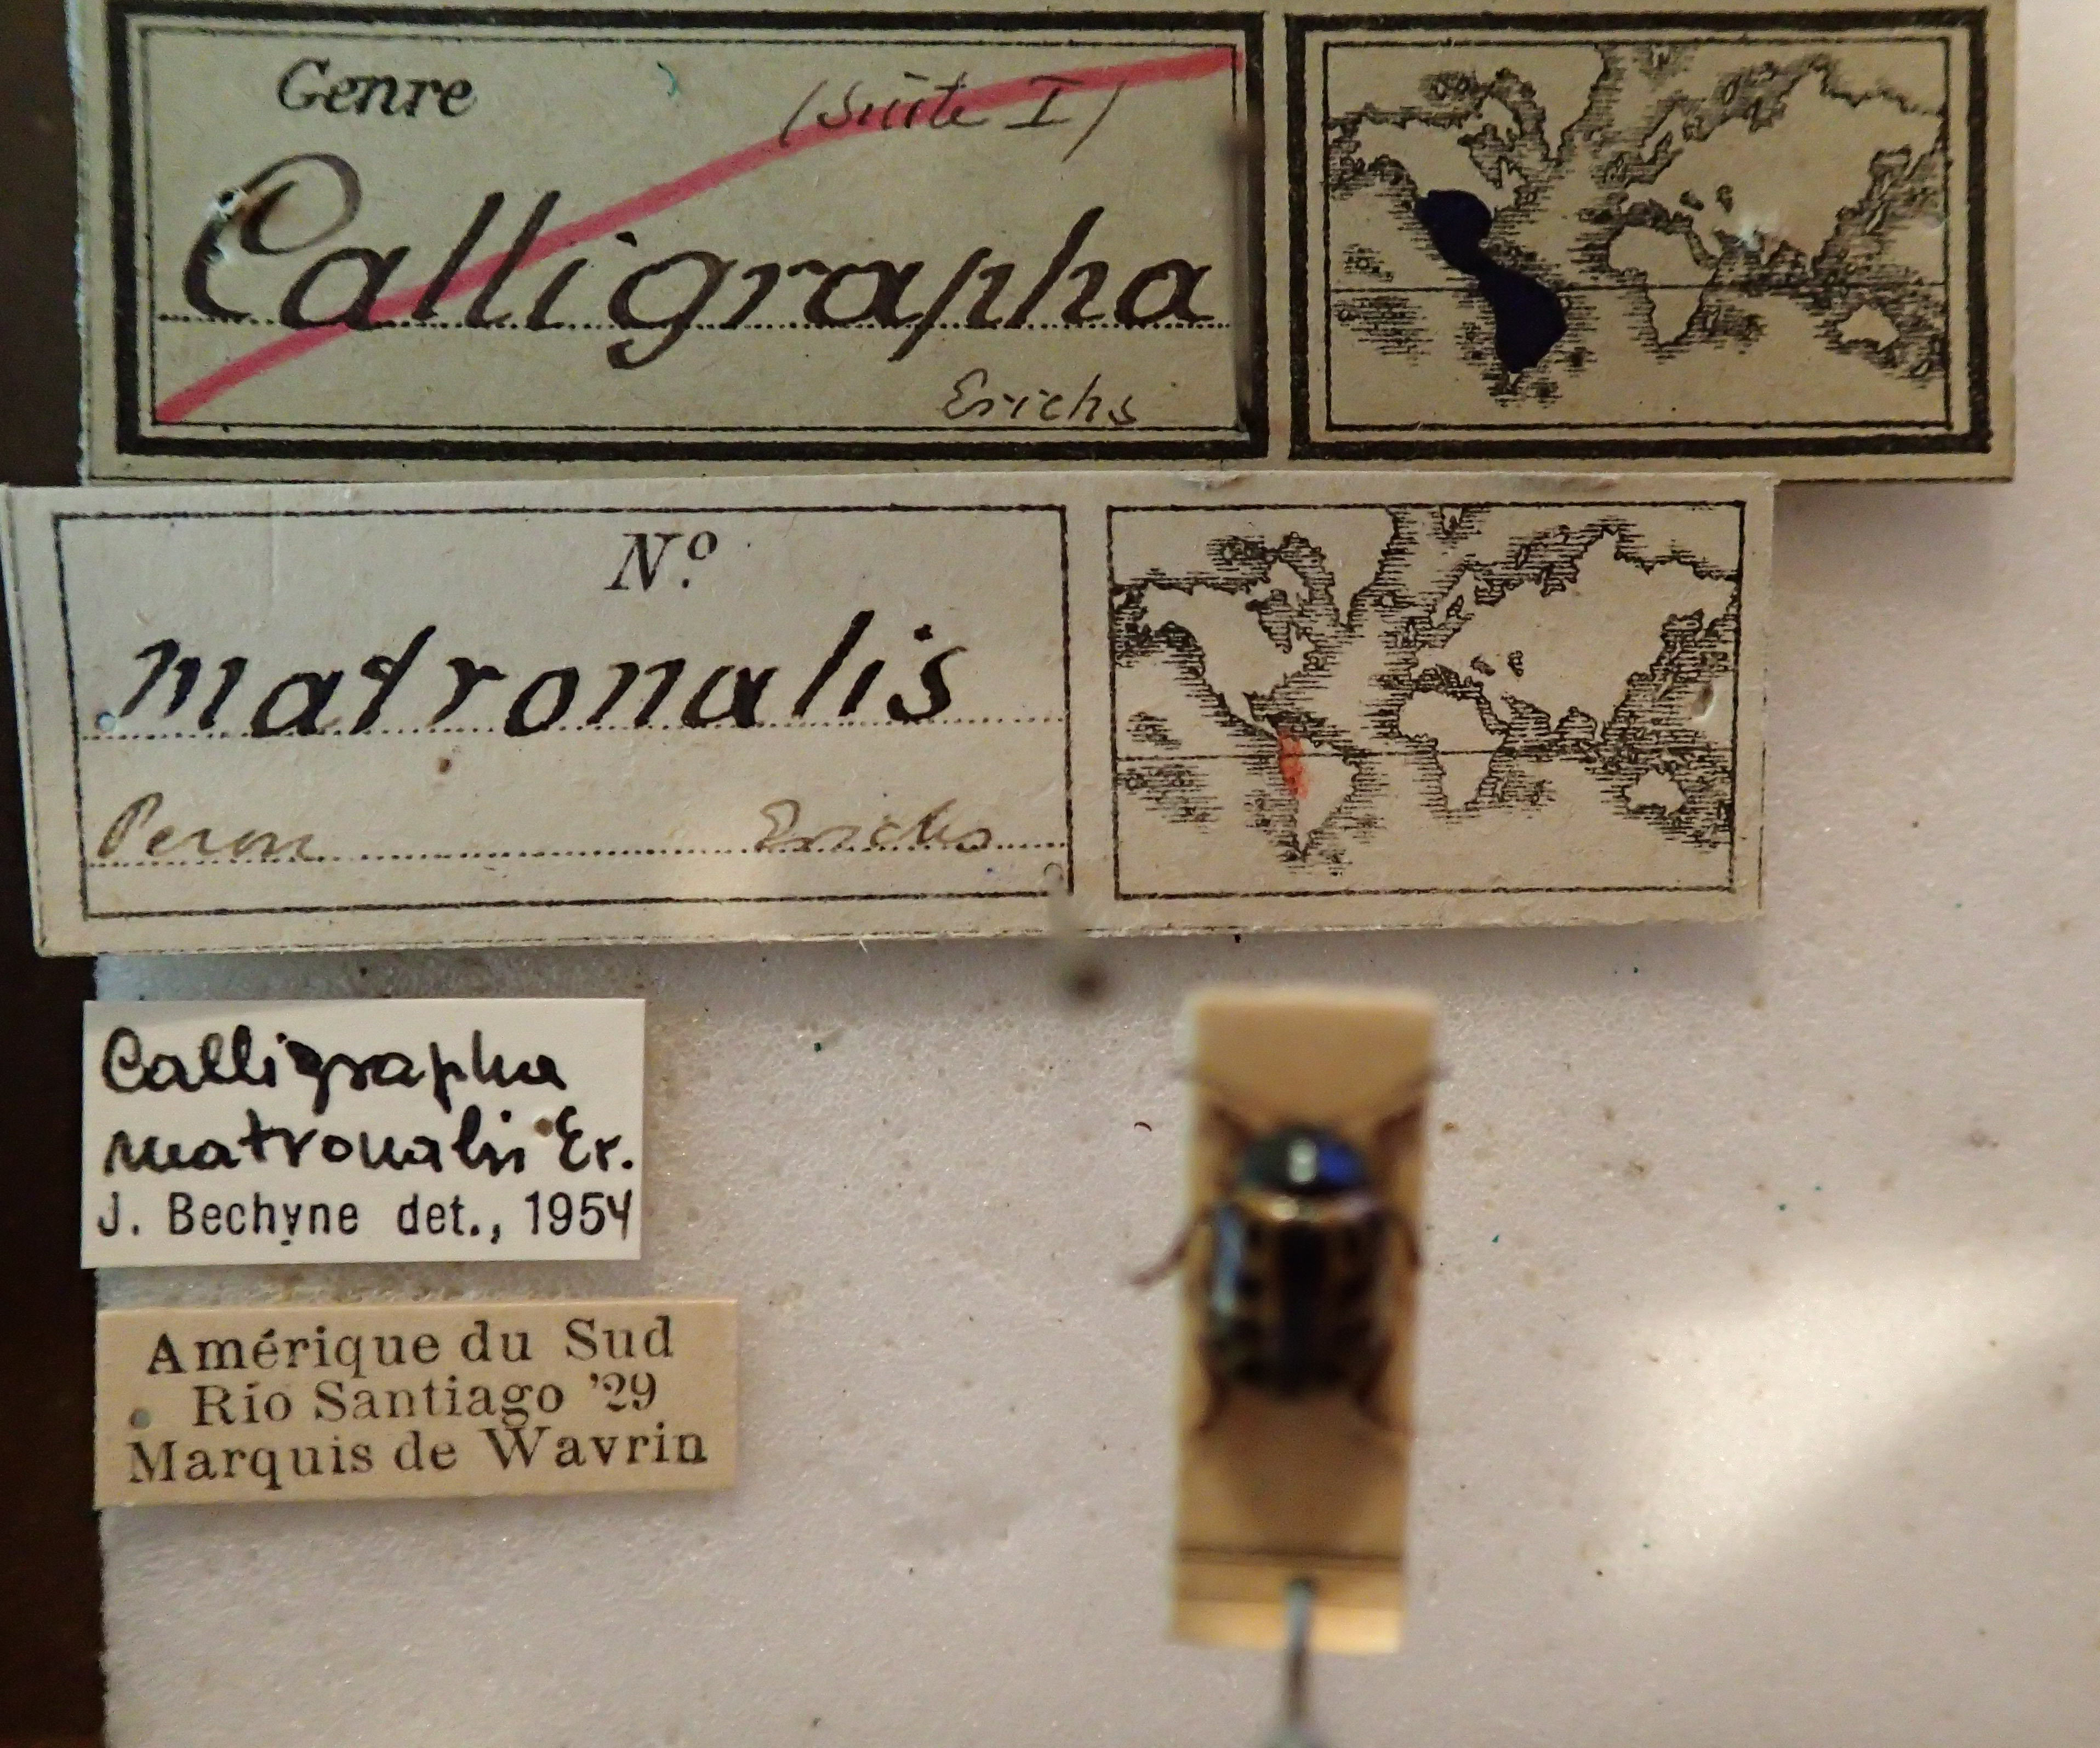 Genre
(Suite I)
Calligrapha
Erichs
N.º
matronalis
Perou Erichs
Calligrapha
matronalis Er.
J. Bechyne det., 1954
Amérique du Sud
Rio Santiago '29
Marquis de Wavrin